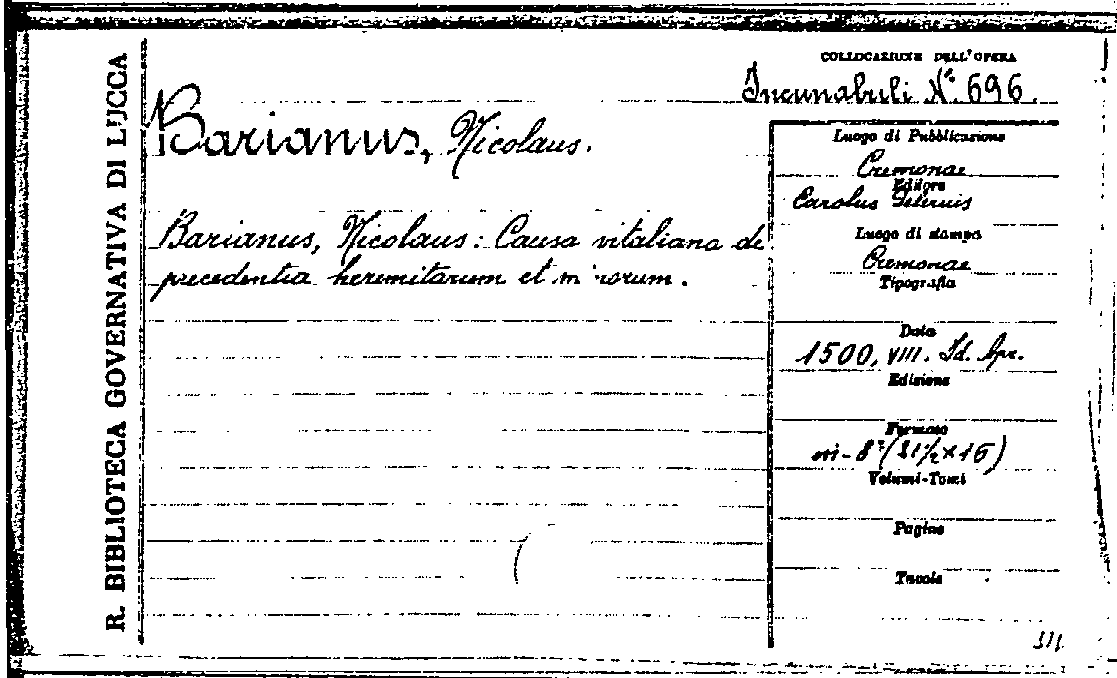 R. BIBLIOTECA GOVERNATIVA DI LUCCA
COLLOCAZIONE DELL'OPERA
Incunabuli N.° 696.
Barianus, Nicolaus.
Barianus, Nicolaus: Causa vitaliana de
precedentia heremitarum et minorum.
Luogo di Pubblicazione
Cremonae
Editore
Carolus
Luogo di stampa
Cremonae
Tipografia
Data
1500, VIII. Id. Apr.
Edizione
Formato
in-8° (21 1/2 x 16)
Volumi-Tomi
Pagine
Tavole